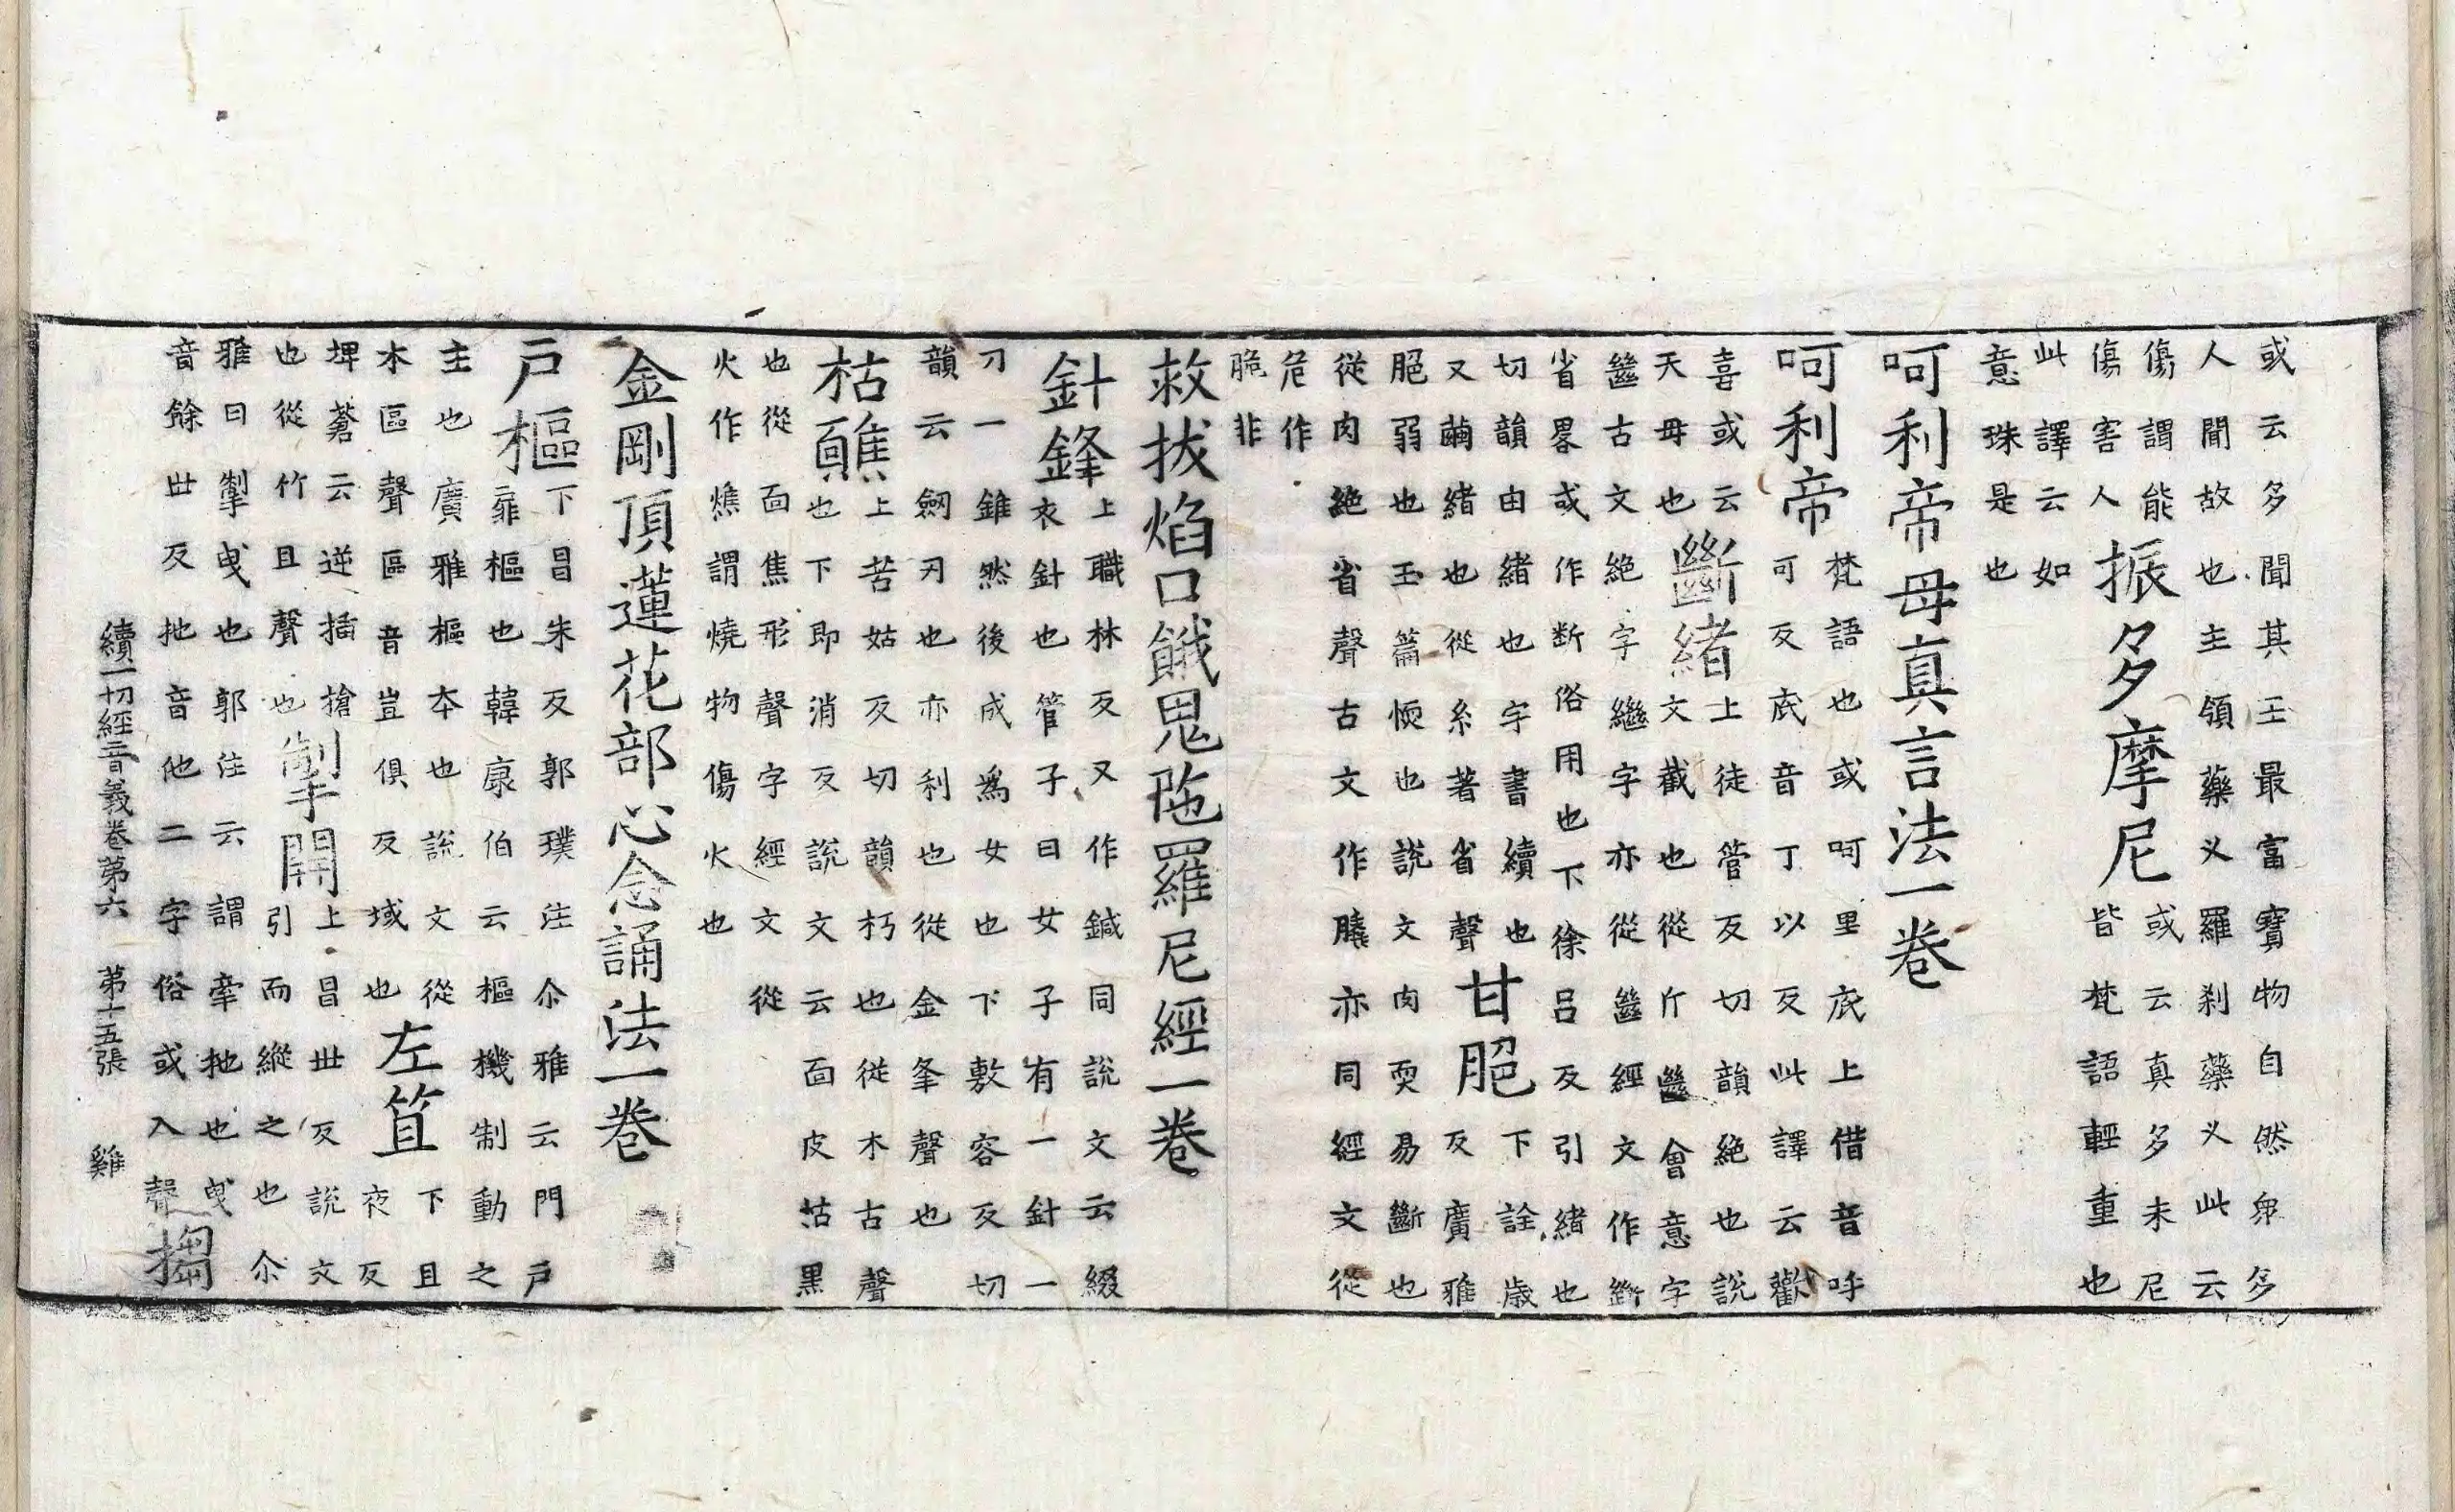 或云多聞其王最富寶物自然眾多人聞故也主領藥义羅刹藥义此云
傷謂能傷害人振多摩尼或云真多末尼皆梵語輕重也
此譯云如意珠是也
呵利帝母真言法一卷
呵利帝梵語也或呵里底上借音呼可反底音丁以反此譯云歡
喜或云天母也斷緒上徒管反切韻絶也說文截也從斤㡭會意字
㡭古文絶字繼字亦從㡭經文作斷省畧或作断俗用也下徐吕反引緒也
切韻由緒也字書續也又繭緒也從糸著省聲甘脃下詮歲反廣雅
脃弱也玉篇愞也說文肉耎易斷也從肉絶省聲古文作膬亦同經文從
危作脆非
救拔焰口餓鬼陁羅尼經一卷
針鋒上職林反又作鍼同說文云綴衣針也管子曰女子有一針一
刀一錐然後成爲女也下敷容反切韻云劒刃也亦利也從金夆聲也
枯䩌上苦姑反切韻朽也從木古聲也下即消反說文云面皮枯黑
也從面焦形聲字經文從火作燋謂燒物傷火也
金剛頂蓮花部心念誦法一卷
戶樞下昌朱反郭璞注尒雅云門戶扉樞也韓康伯云樞機制動之
主也廣雅樞本也說文從木區聲區音豈俱反域也左笡下且夜反
埤蒼云逆插搶也從竹且聲也掣開上昌丗反說文引而縱之也尒
雅曰掣曳也郭注云謂牽拕也曳音餘丗反拕音他二字俗或入聲搊
續一切經音義卷第六 第十五張 雞